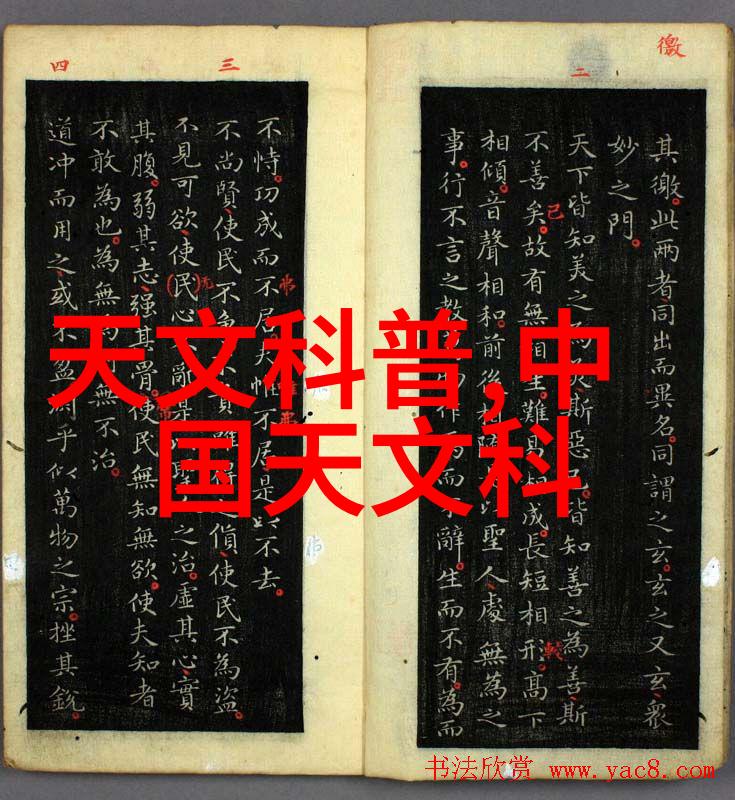 徼
二
其徼此兩者同出而異名同謂之玄玄之又玄眾
妙之門
天下皆知美之為斯惡已皆知善之為善斯
不善矣故有無相生難易相成長短相形高下
已
相傾音聲相和前後相以聖人處無為之
事行不言之教作而辭生而不有為而
三
四
不恃功成而不居夫惟不居是以不去
不尚賢使民不爭貴難之貨使民不為盜
不見可欲使(民)心亂聖之治虛其心實
无
其腹弱其志强其骨使民無知無欲使夫知者
不敢為也為無為無不治
道冲而用之或不盈淵乎似萬物之宗挫其銳
天文科普,中
国天文科
书法欣赏 www.yac8.com